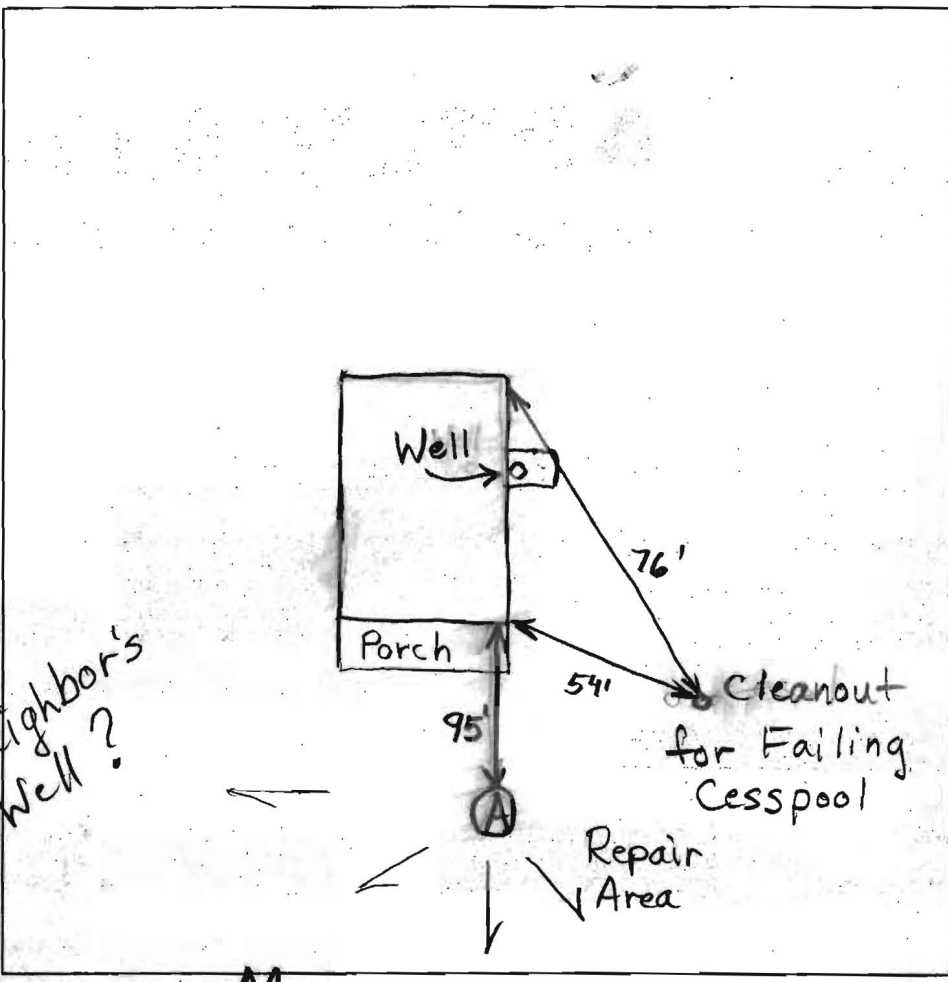 Well
76'
Porch
54'
95'
Cleanout
for Failing
Cesspool
ighbor's
Well ?
A
Repair
Area